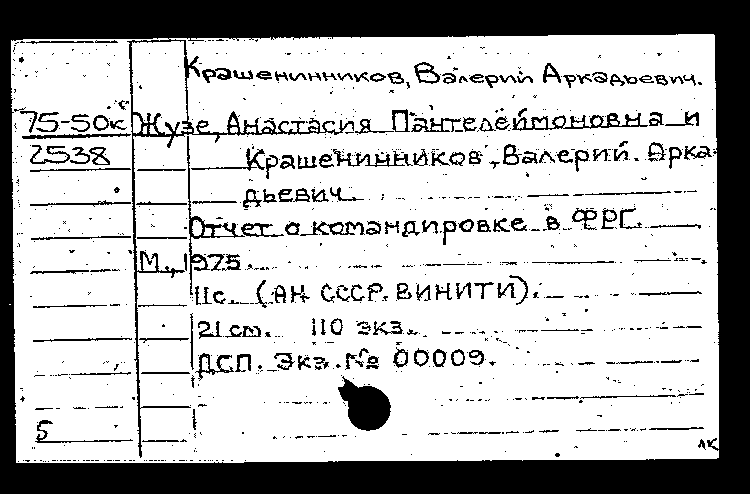 Крашенинников, Валерий Аркадьевич.
75-50к Жузе, Анастасия Пантелеймоновна и
2538 Крашенинников, Валерий. Арка-
дьевич.
Отчет о командировке в ФРГ.
М., 1975.
11с. (АН СССР. ВИНИТИ).
21 см. 110 экз.
ДСП. Экз. № 00009.
5
ЛК